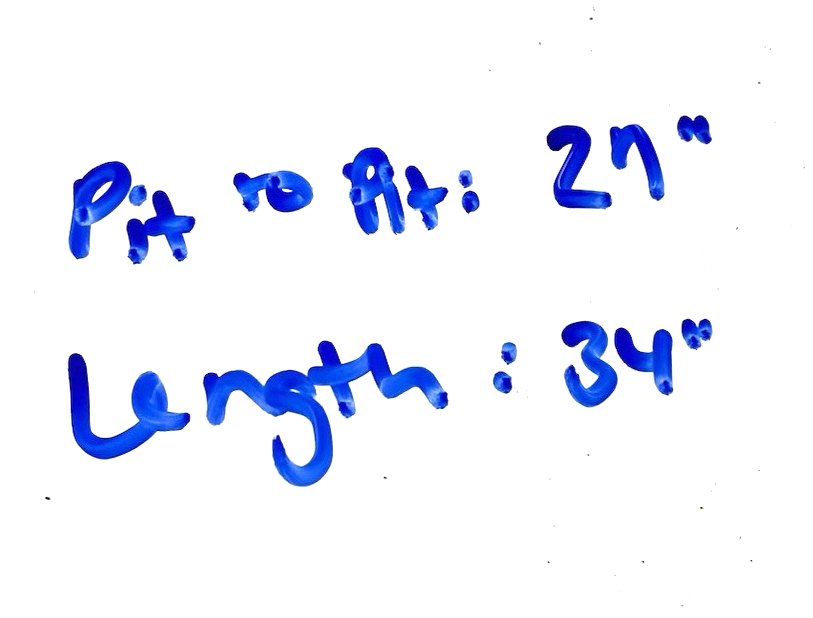 Pit to Pit: 27"
Length: 34"